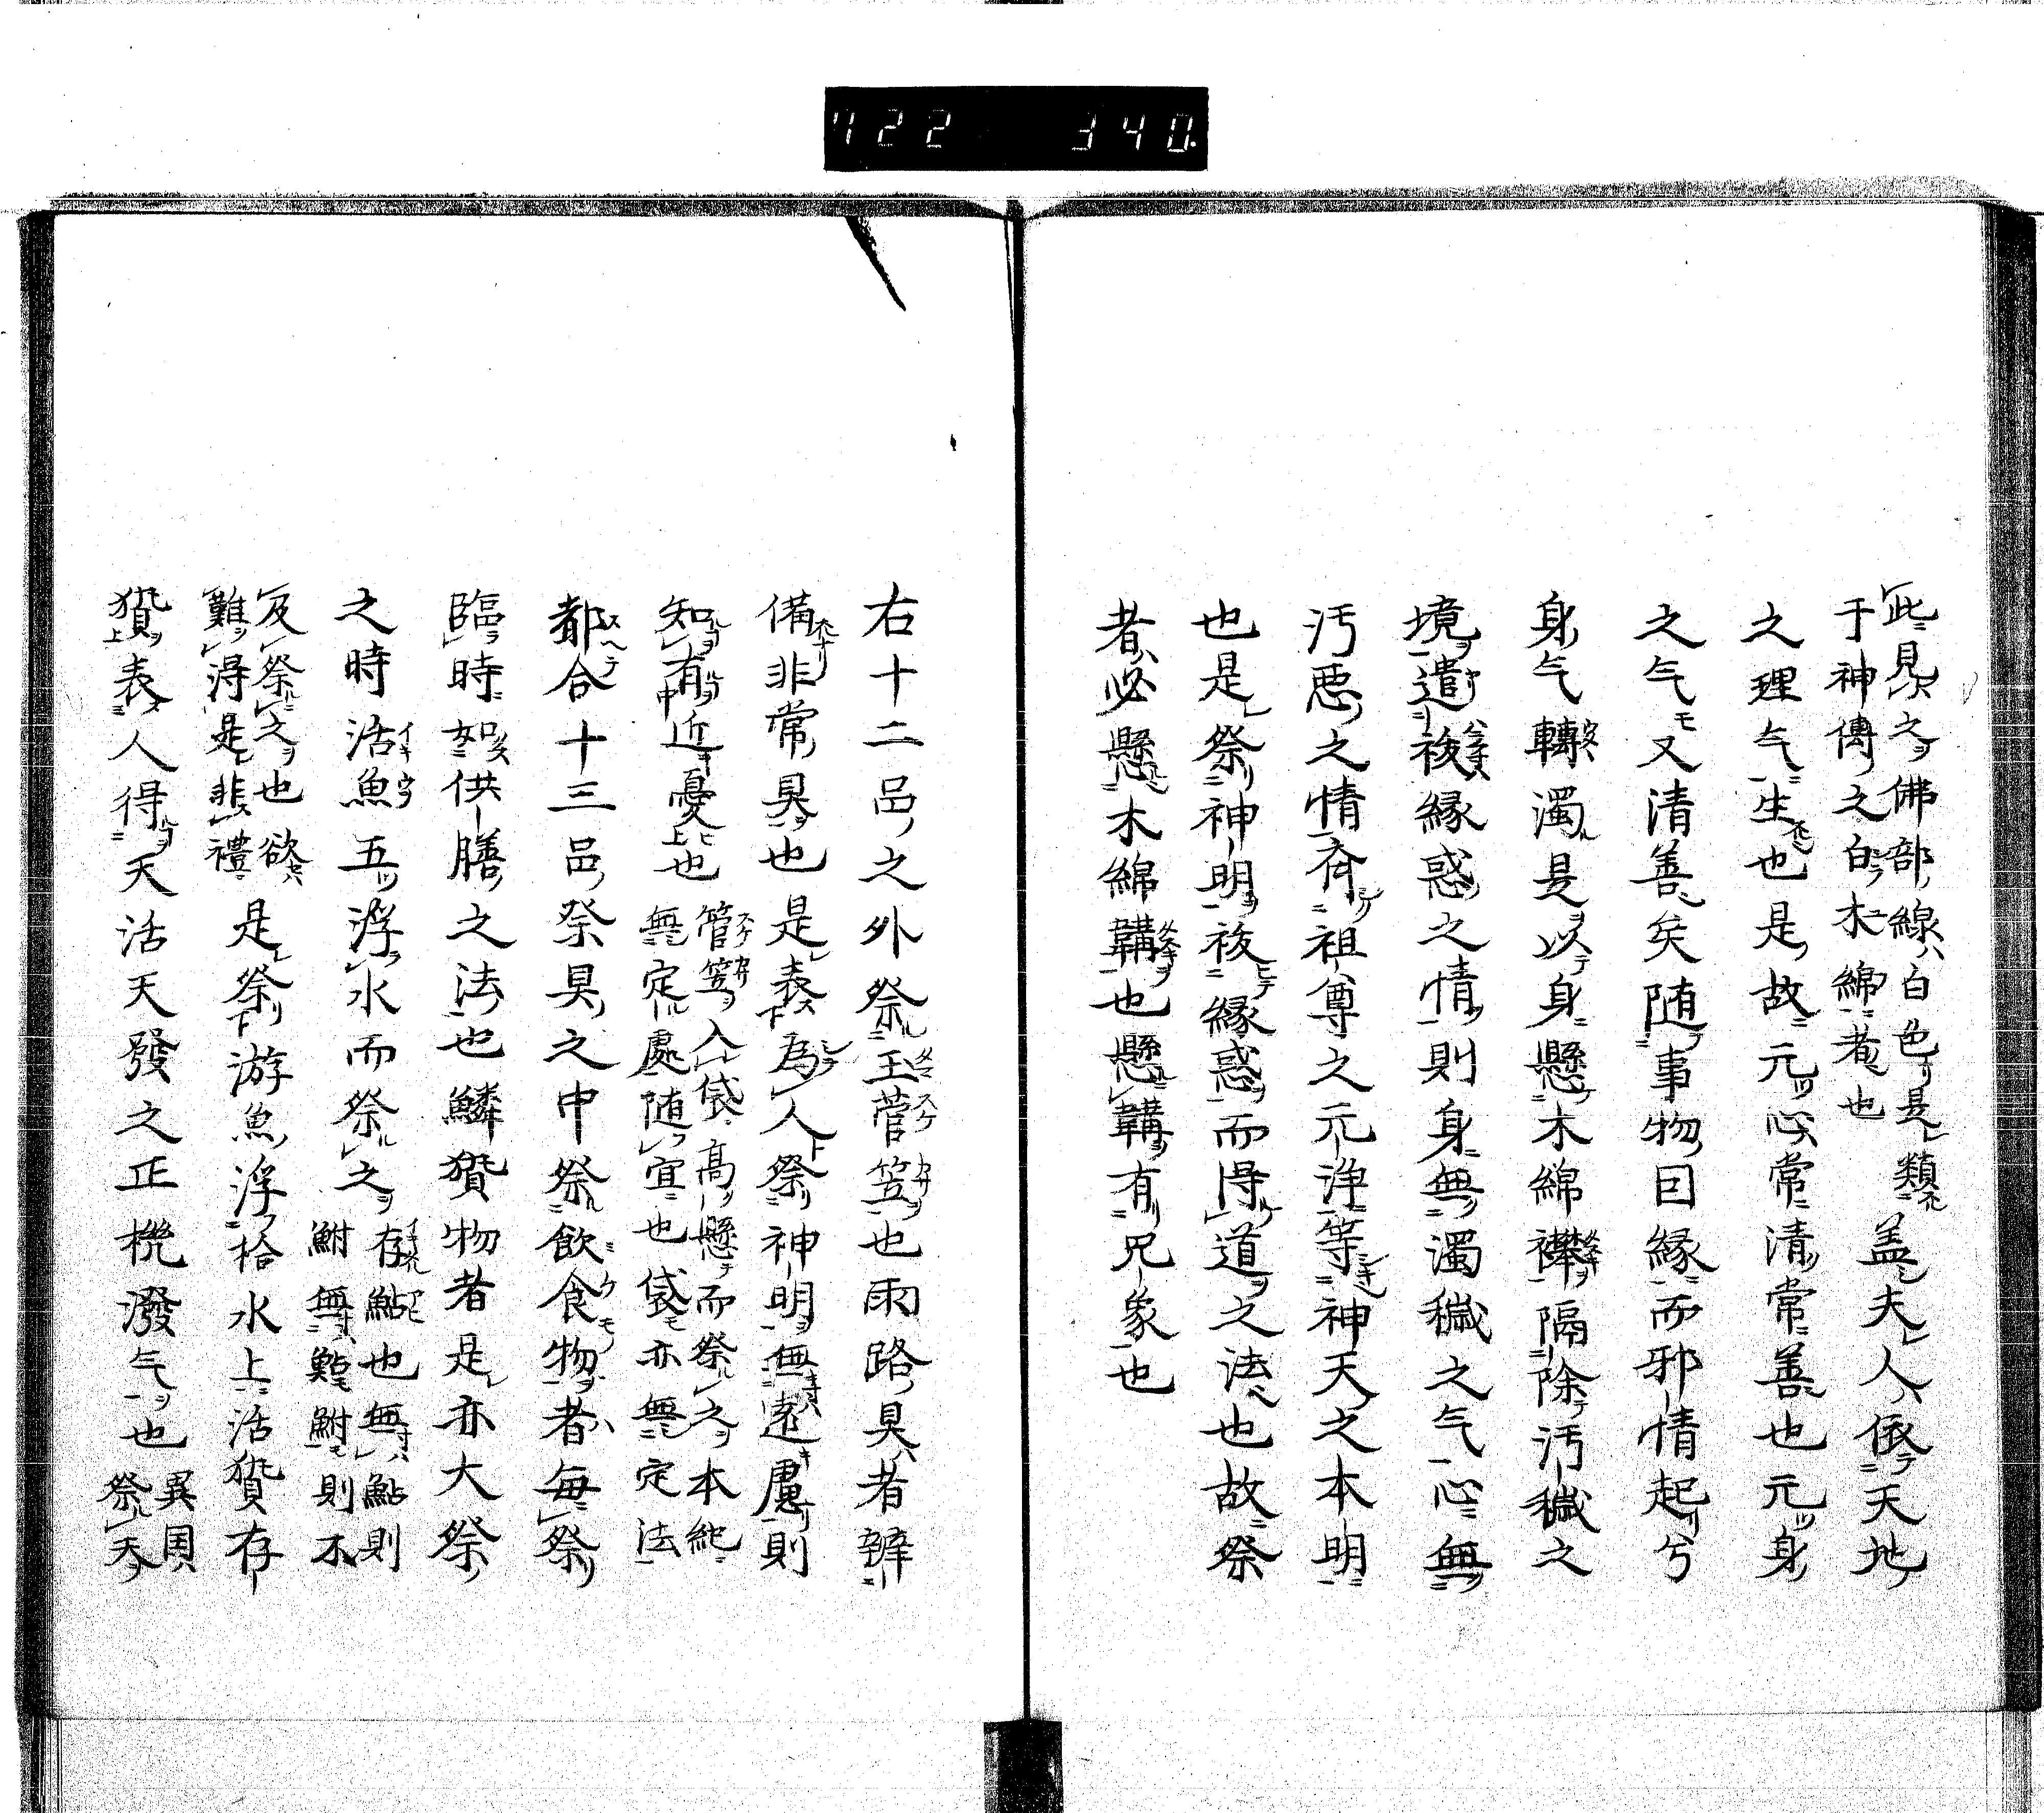 722 340.
此見之佛部線白色是類
于神傳之白木綿者也
盖夫人依天地
之理气生也是故元心常清常善也元身
之气又清善矣随事物因縁而邪情起兮
身气轉濁是以身懸木綿襷隔除汚穢之
境遣祓縁惑之情則身無濁穢之气心無
汚悪之情斉祖尊之元浄等神天之本明
也是祭神明祓縁惑而得道之法也故祭
者必懸木綿韝也懸韝有咒象也
右十二品之外祭王菅笠也雨路具者韓
備非常具也是表為人祭神明無遠慮則
知有近憂也
菅笠入袋高懸而祭之本紀
無定處随宜也袋亦無定法
都合十三品祭具之中祭飲食物者毎祭
臨時如供膳之法也鱗贄物者是亦大祭
之時活魚五浮水而祭之
存鮎也無鮎則
鮒無鮎鮒則不
及祭之也欲
難得是非禮
是祭游魚浮桶水上活贄存
贄表人得天活天發之正機潑气也
異国
祭天